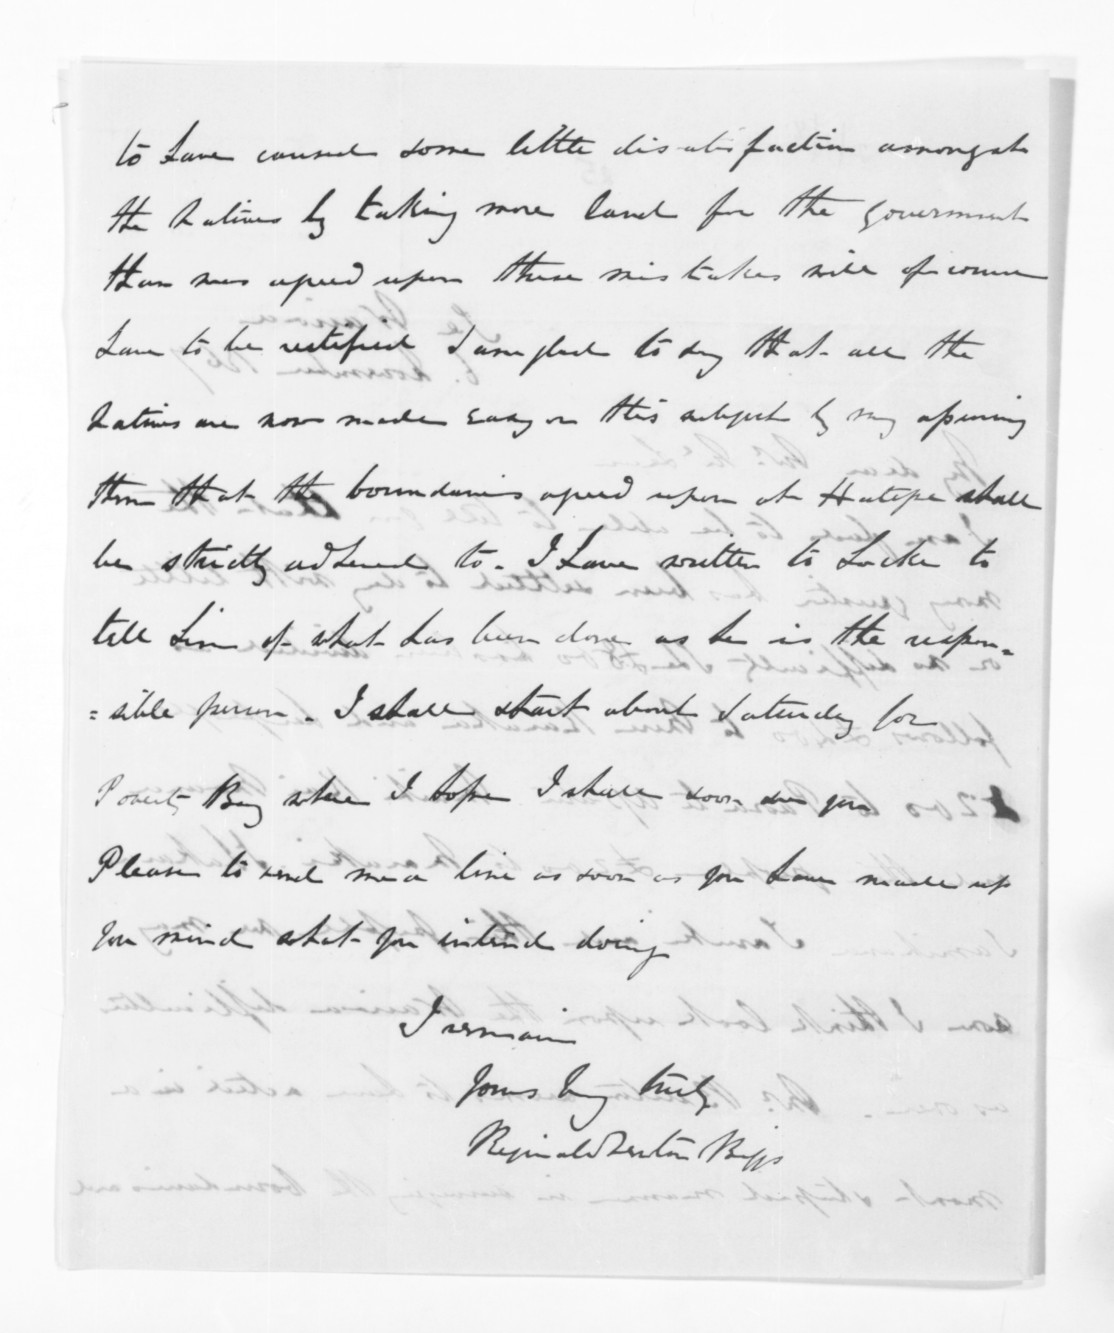 to have caused some little dissatisfaction amongst
the Natives by taking more land for the government
than was agreed upon these mistakes will of course
have to be rectified I am glad to say that all the
Natives are now made easy on this subject by my assuring
them that the boundaries agreed upon at Hatepe shall
be strictly adhered to. I have written to Locke to
tell him of what has been done as he is the respon=
=sible person. I shall start about Saturday for
Poverty Bay where I hope I shall soon see you
Please to send me a line as soon as you have made up
you mind what you intend doing
I remain
Yours Very truly
Reginald Newton Biggs